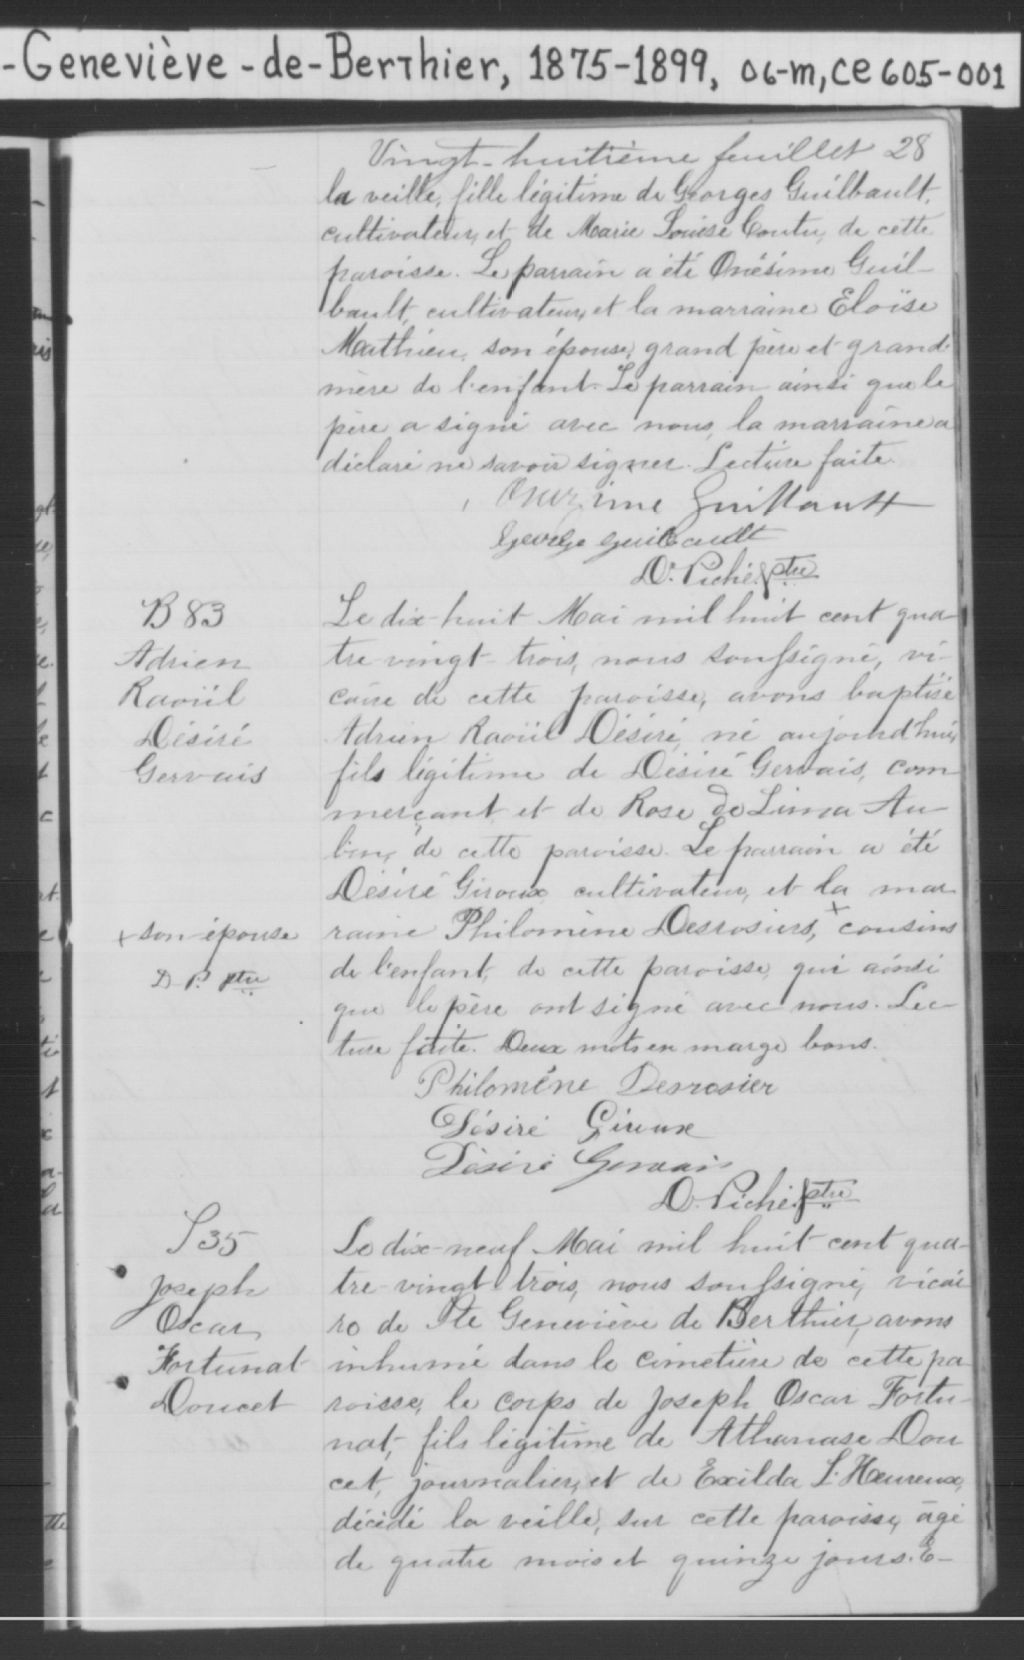 -Geneviève-de-Berthier, 1875-1899, 06-m, ce 605-001
Vingt-huitième feuillet 28
la veille, fille légitime de Georges Guilbault,
cultivateur, et de Marie Louise Coutu, de cette
paroisse. Le parrain a été Onésime Guil-
bault, cultivateur, et la marraine Eloïse
Mathieu, son épouse, grand père et grand-
mère de l'enfant. Le parrain ainsi que le
père a signé avec nous, la marraine a
déclaré ne savoir signer. Lecture faite.
Onezime Guilbault
George Guilbault
D. Piché, ptre
B 83
Adrien
Raoüil
Désiré
Gervais
Le dix-huit Mai mil huit cent qua-
tre-vingt-trois, nous soussigné, vi-
caire de cette paroisse, avons baptisé
Adrien Raoüil Désiré, né aujourd'hui,
fils légitime de Désiré Gervais, com-
merçant et de Rose de Lima Au-
bin, de cette paroisse. Le parrain a été
Désiré Giroux, cultivateur, et la mar-
raine Philomène Desrosiers, + cousins
+ son épouse
D. P. ptre
de l'enfant, de cette paroisse, qui ainsi
que le père ont signé avec nous. Lec-
ture faite. Deux mots en marge bons.
Philomène Desrosier
Désiré Giroux
Désiré Gervais
D. Piché, ptre
S 35
Joseph
Oscar
Fortunat
Doucet
Le dix-neuf Mai mil huit cent qua-
tre-vingt trois, nous soussigné, vicai-
re de Ste Geneviève de Berthier, avons
inhumé dans le cimetière de cette pa-
roisse, le corps de Joseph Oscar Fortu-
nat, fils légitime de Athanase Dou-
cet, journalier, et de Exilda L'Heureux,
décédé la veille, sur cette paroisse, âgé
de quatre mois et quinze jours. E-